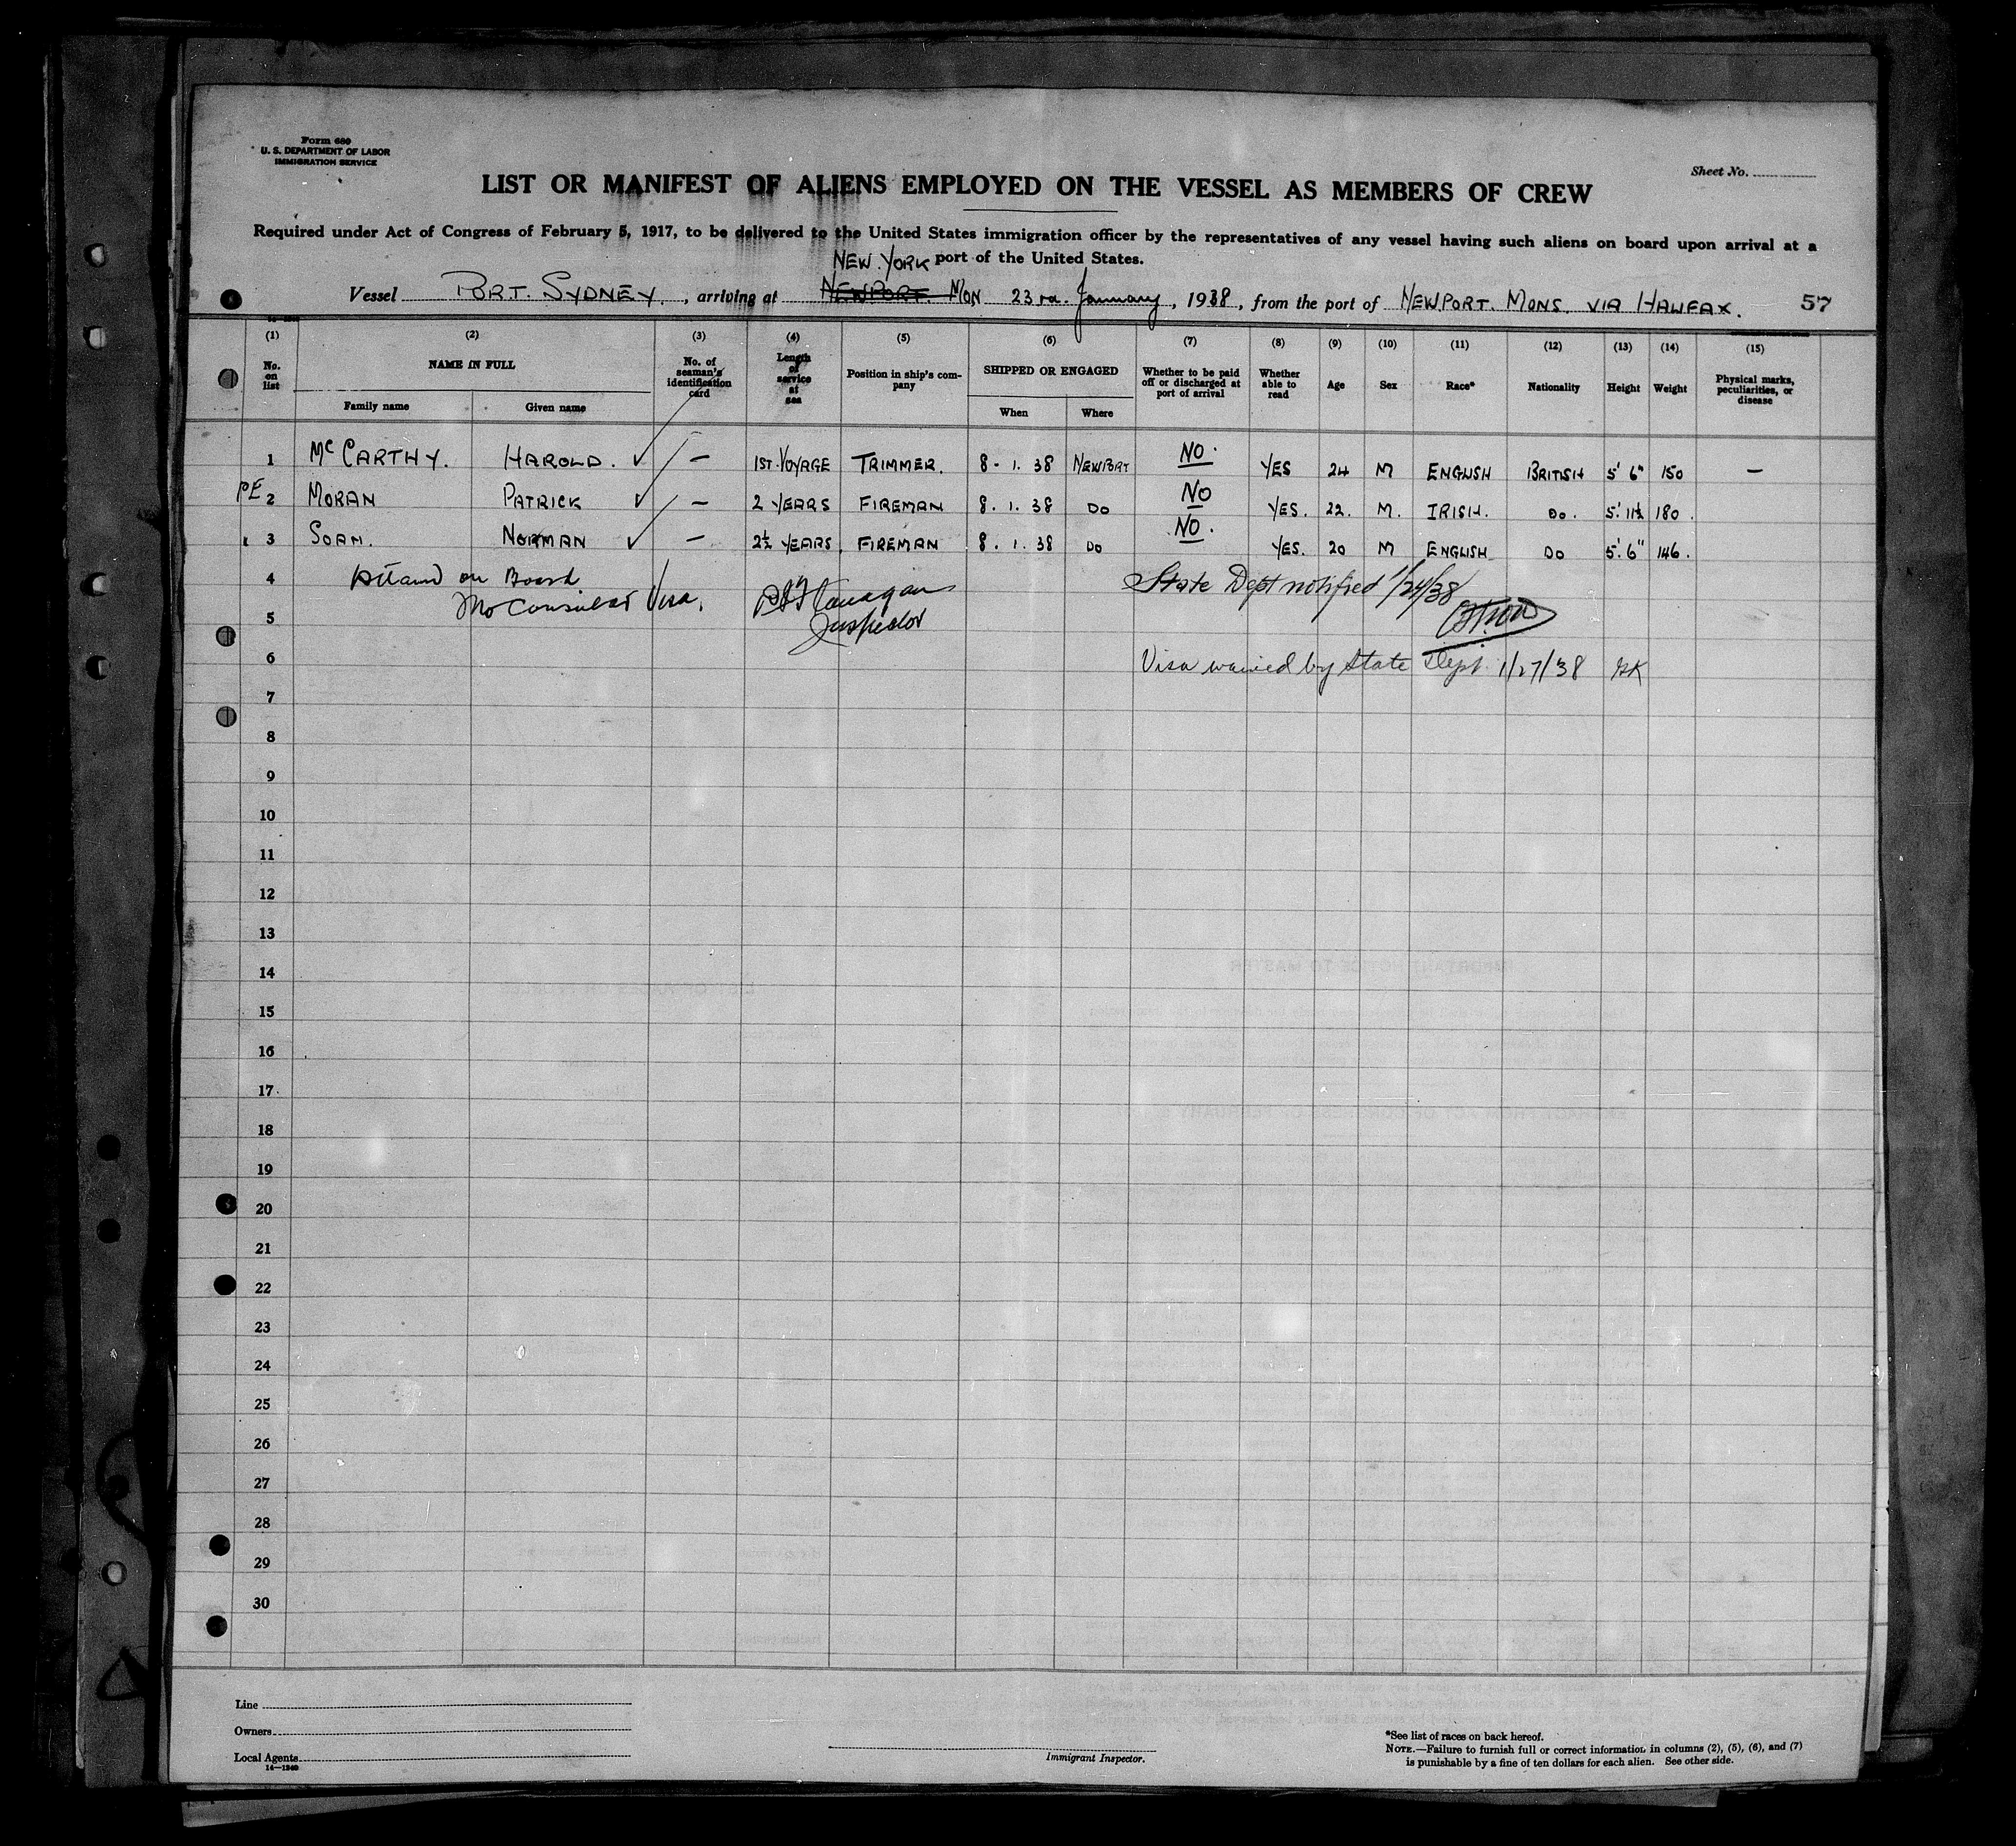 Form 680
U. S. DEPARTMENT OF LABOR
IMMIGRATION SERVICE
Sheet No.
LIST OR MANIFEST OF ALIENS EMPLOYED ON THE VESSEL AS MEMBERS OF CREW
Required under Act of Congress of February 5, 1917, to be delivered to the United States immigration officer by the representatives of any vessel having such aliens on board upon arrival at a
port of the United States.
NEW YORK
Vessel PORT. SYDNEY., arriving at NEWPORT MON 23rd. January, 1938, from the port of NEWPORT. MONS. VIA HALIFAX. 57
(1) (2) (3) (4) (5) (6) (7) (8) (9) (10) (11) (12) (13) (14) (15)
No. on list NAME IN FULL No. of seaman's identification card Length of service at sea Position in ship's company SHIPPED OR ENGAGED Whether to be paid off or discharged at port of arrival Whether able to read Age Sex Race* Nationality Height Weight Physical marks, peculiarities, or disease
Family name Given name When Where
1 McCARTHY. HAROLD. ✓ — 1ST. VOYAGE TRIMMER. 8-1.38 NEWPORT NO. YES 24 M ENGLISH BRITISH 5' 6" 150 —
PE 2 MORAN PATRICK ✓ — 2 YEARS FIREMAN 8.1.38 DO NO YES. 22. M. IRISH. DO. 5'. 11½ 180.
3 SOAN. NORMAN ✓ — 2½ YEARS. FIREMAN 8.1.38 DO NO. YES. 20 M ENGLISH DO 5'. 6" 146.
4 on Board State Dept notified 1/24/38
No Consular Visa. Flanagan
5 Inspector
6 Visa waived by State Dept. 1/27/38
7
8
9
10
11
12
13
14
15
16
17
18
19
20
21
22
23
24
25
26
27
28
29
30
Line
Owners
Local Agents
14—1240
Immigrant Inspector.
*See list of races on back hereof.
NOTE.—Failure to furnish full or correct information in columns (2), (5), (6), and (7)
is punishable by a fine of ten dollars for each alien. See other side.